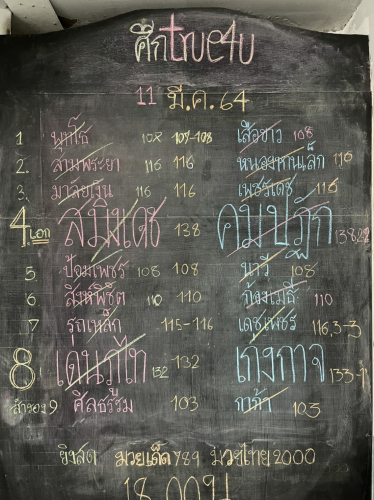 ศึกtrue4u
11 มี.ค. 64
1 พูโธ 108 107-108 เสือขาว 108
2. สามพระยา 116 116 หนองหานเล็ก 116
3. มาลัยเงิน 116 116 เพชรเดช 116
4 เอก สมิงเดช 138 คมปฏัก 138
5 ป้อมเพชร 108 108 นาวี 108
6 สิงห์พิชิต 110 110 ก้องเมธี 110
7 รุกเหล็ก 115-116 เดชเพชร 116,3-3
8 เด่นภูไท 132 132 เก่งกาจ 133-1
สำรอง 9 ศีลธรรม 103 กาก้า 103
ยิงสด มวยเด็ด789 มวยไทย2000
18.00น